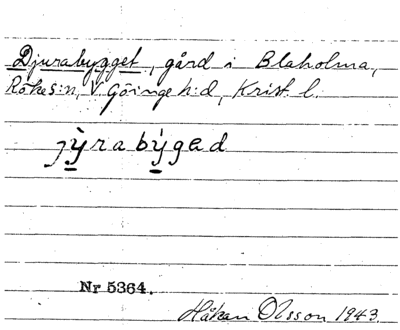 Djurabygget, gård i Blaholma,
Röke s:n, V Göinge h:d, Krist. l.
jỳ̱rabý̱gəd
Nr 5364.
Håkan Olsson 1943.